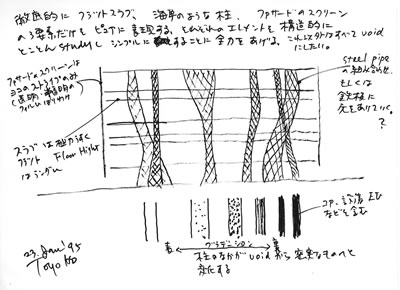 徹底的にフラットスラブ、海草のような柱、ファサードのスクリーン
の3要素だけをピュアに表現する。それぞれのエレメントを構造的に
とことんstudyしシンプルにすることに全力をあげる。これ以外はすべてvoid
にしたい。
ファサードのスクリーンは
ヨコのストライプのみ
(透明、半透明の
スラブは極力うすく
フラット
Floor Hight
はランダム
steel pipe
の組み合わせ、
もしくは
鉄板に
穴をあけていく。
?
コア、設備、EV
などを含む
グラデーション
柱のなかがvoidから密実なものへと
変化する
23. Jan' 95
Toyo Ito